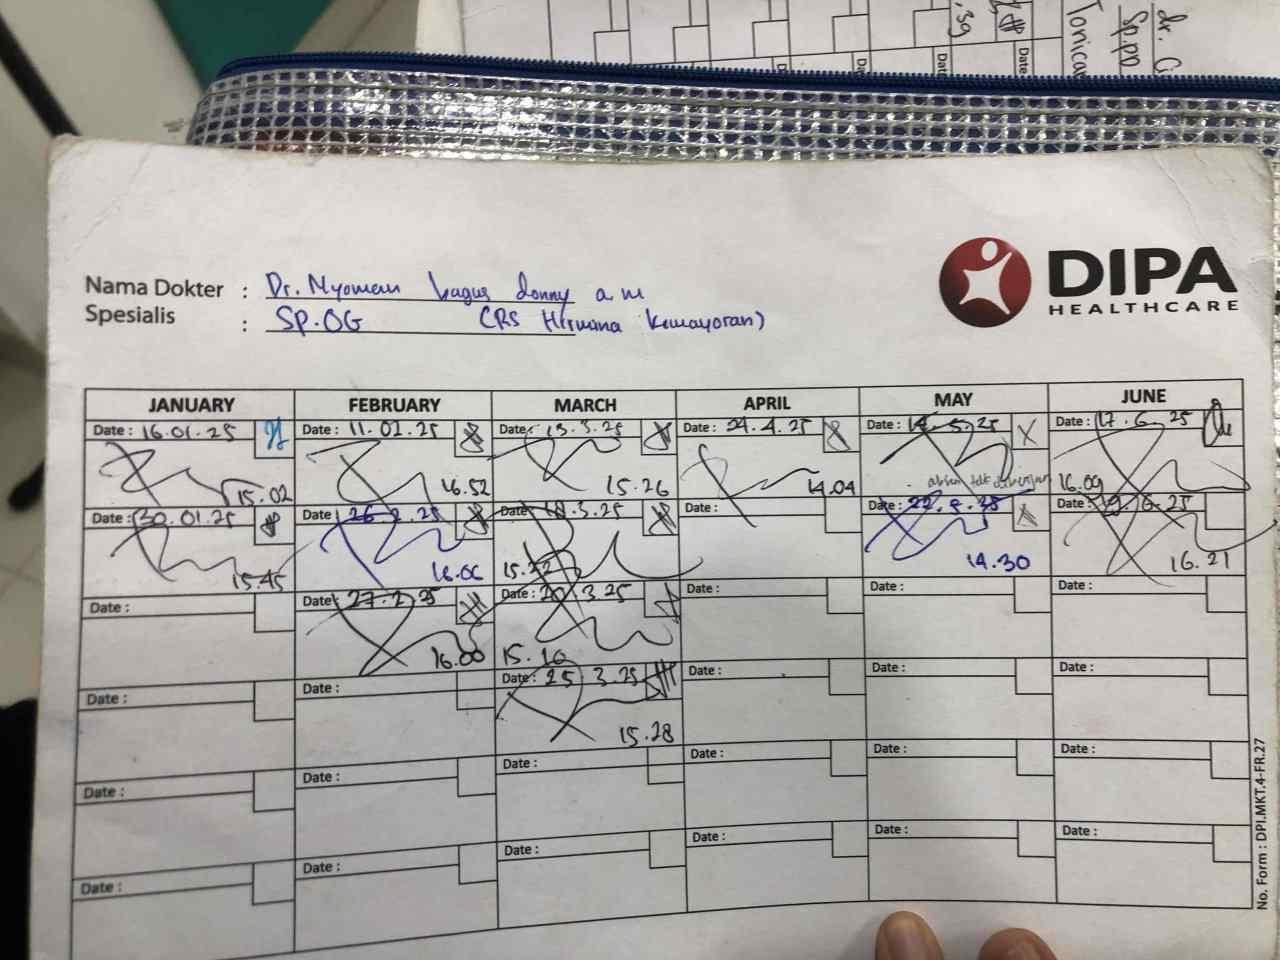 dr. Ci
Sp.PD
Date
Date
Date
DIPA
HEALTHCARE
Nama Dokter : Dr. Nyoman bagus donny a m
Spesialis : SP.OG (RS Hermina Kemayoran)
JANUARY FEBRUARY MARCH APRIL MAY JUNE
Date : 16.01.25 Date : 11.02.25 Date : 13.3.25 Date : 24.4.25 Date : 14.5.25 Date : 17.6.25
15.02 16.52 15.26 14.04 absen tdk 16.09
Date : 30.01.25 Date : 26.2.25 Date : 18.3.25 Date : Date : 22.5.25 Date : 19.6.25
15.45 16.06 15.22 14.30 16.21
Date : Date : 27.2.25 Date : 20.3.25 Date : Date : Date :
16.00 15.10
Date : Date : Date : 25.3.25 Date : Date : Date :
15.28
Date : Date : Date : Date : Date : Date :
Date : Date : Date : Date : Date : Date :
No. Form : DPI.MKT.4-FR.27